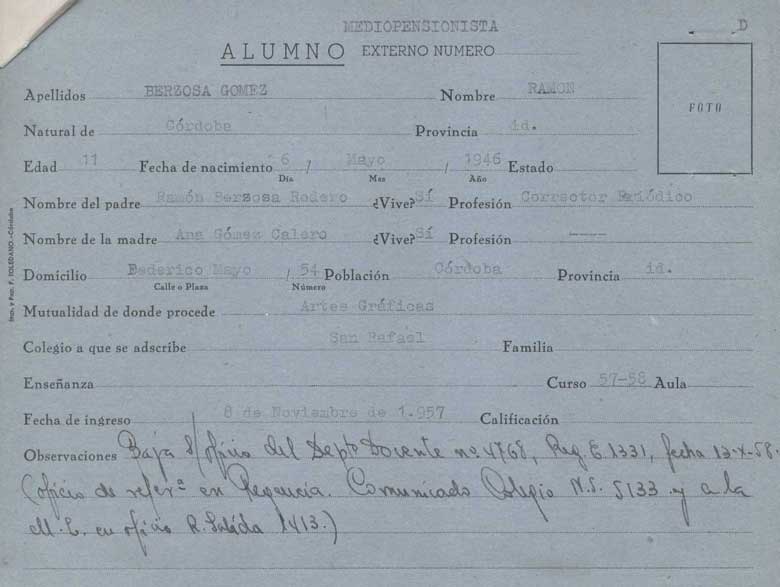 MEDIOPENSIONISTA D
ALUMNO EXTERNO NUMERO
FOTO
Apellidos BERZOSA GOMEZ Nombre RAMON
Natural de Córdoba Provincia id.
Edad 11 Fecha de nacimiento 6 / Mayo / 1946 Estado
Día Mes Año
Nombre del padre Ramón Berzosa Rodero ¿Vive? Sí Profesión Corrector Periódico
Nombre de la madre Ana Gómez Calero ¿Vive? Sí Profesión ----
Domicilio Federico Mayo / 54 Población Córdoba Provincia id.
Calle o Plaza Número
Mutualidad de donde procede Artes Gráficas
Colegio a que se adscribe San Rafael Familia
Enseñanza Curso 57-58 Aula
Fecha de ingreso 8 de Noviembre de 1.957 Calificación
Observaciones Baja s/oficio del Deptº Docente nº 4768, Reg. E. 1331, fecha 13-X-58.
(oficio de referª en Regencia. Comunicado Colegio N.S. 5133 y a la
M.L. en oficio R. Salida 1413.)
Imp. y Pap. F. TOLEDANO.-Córdoba